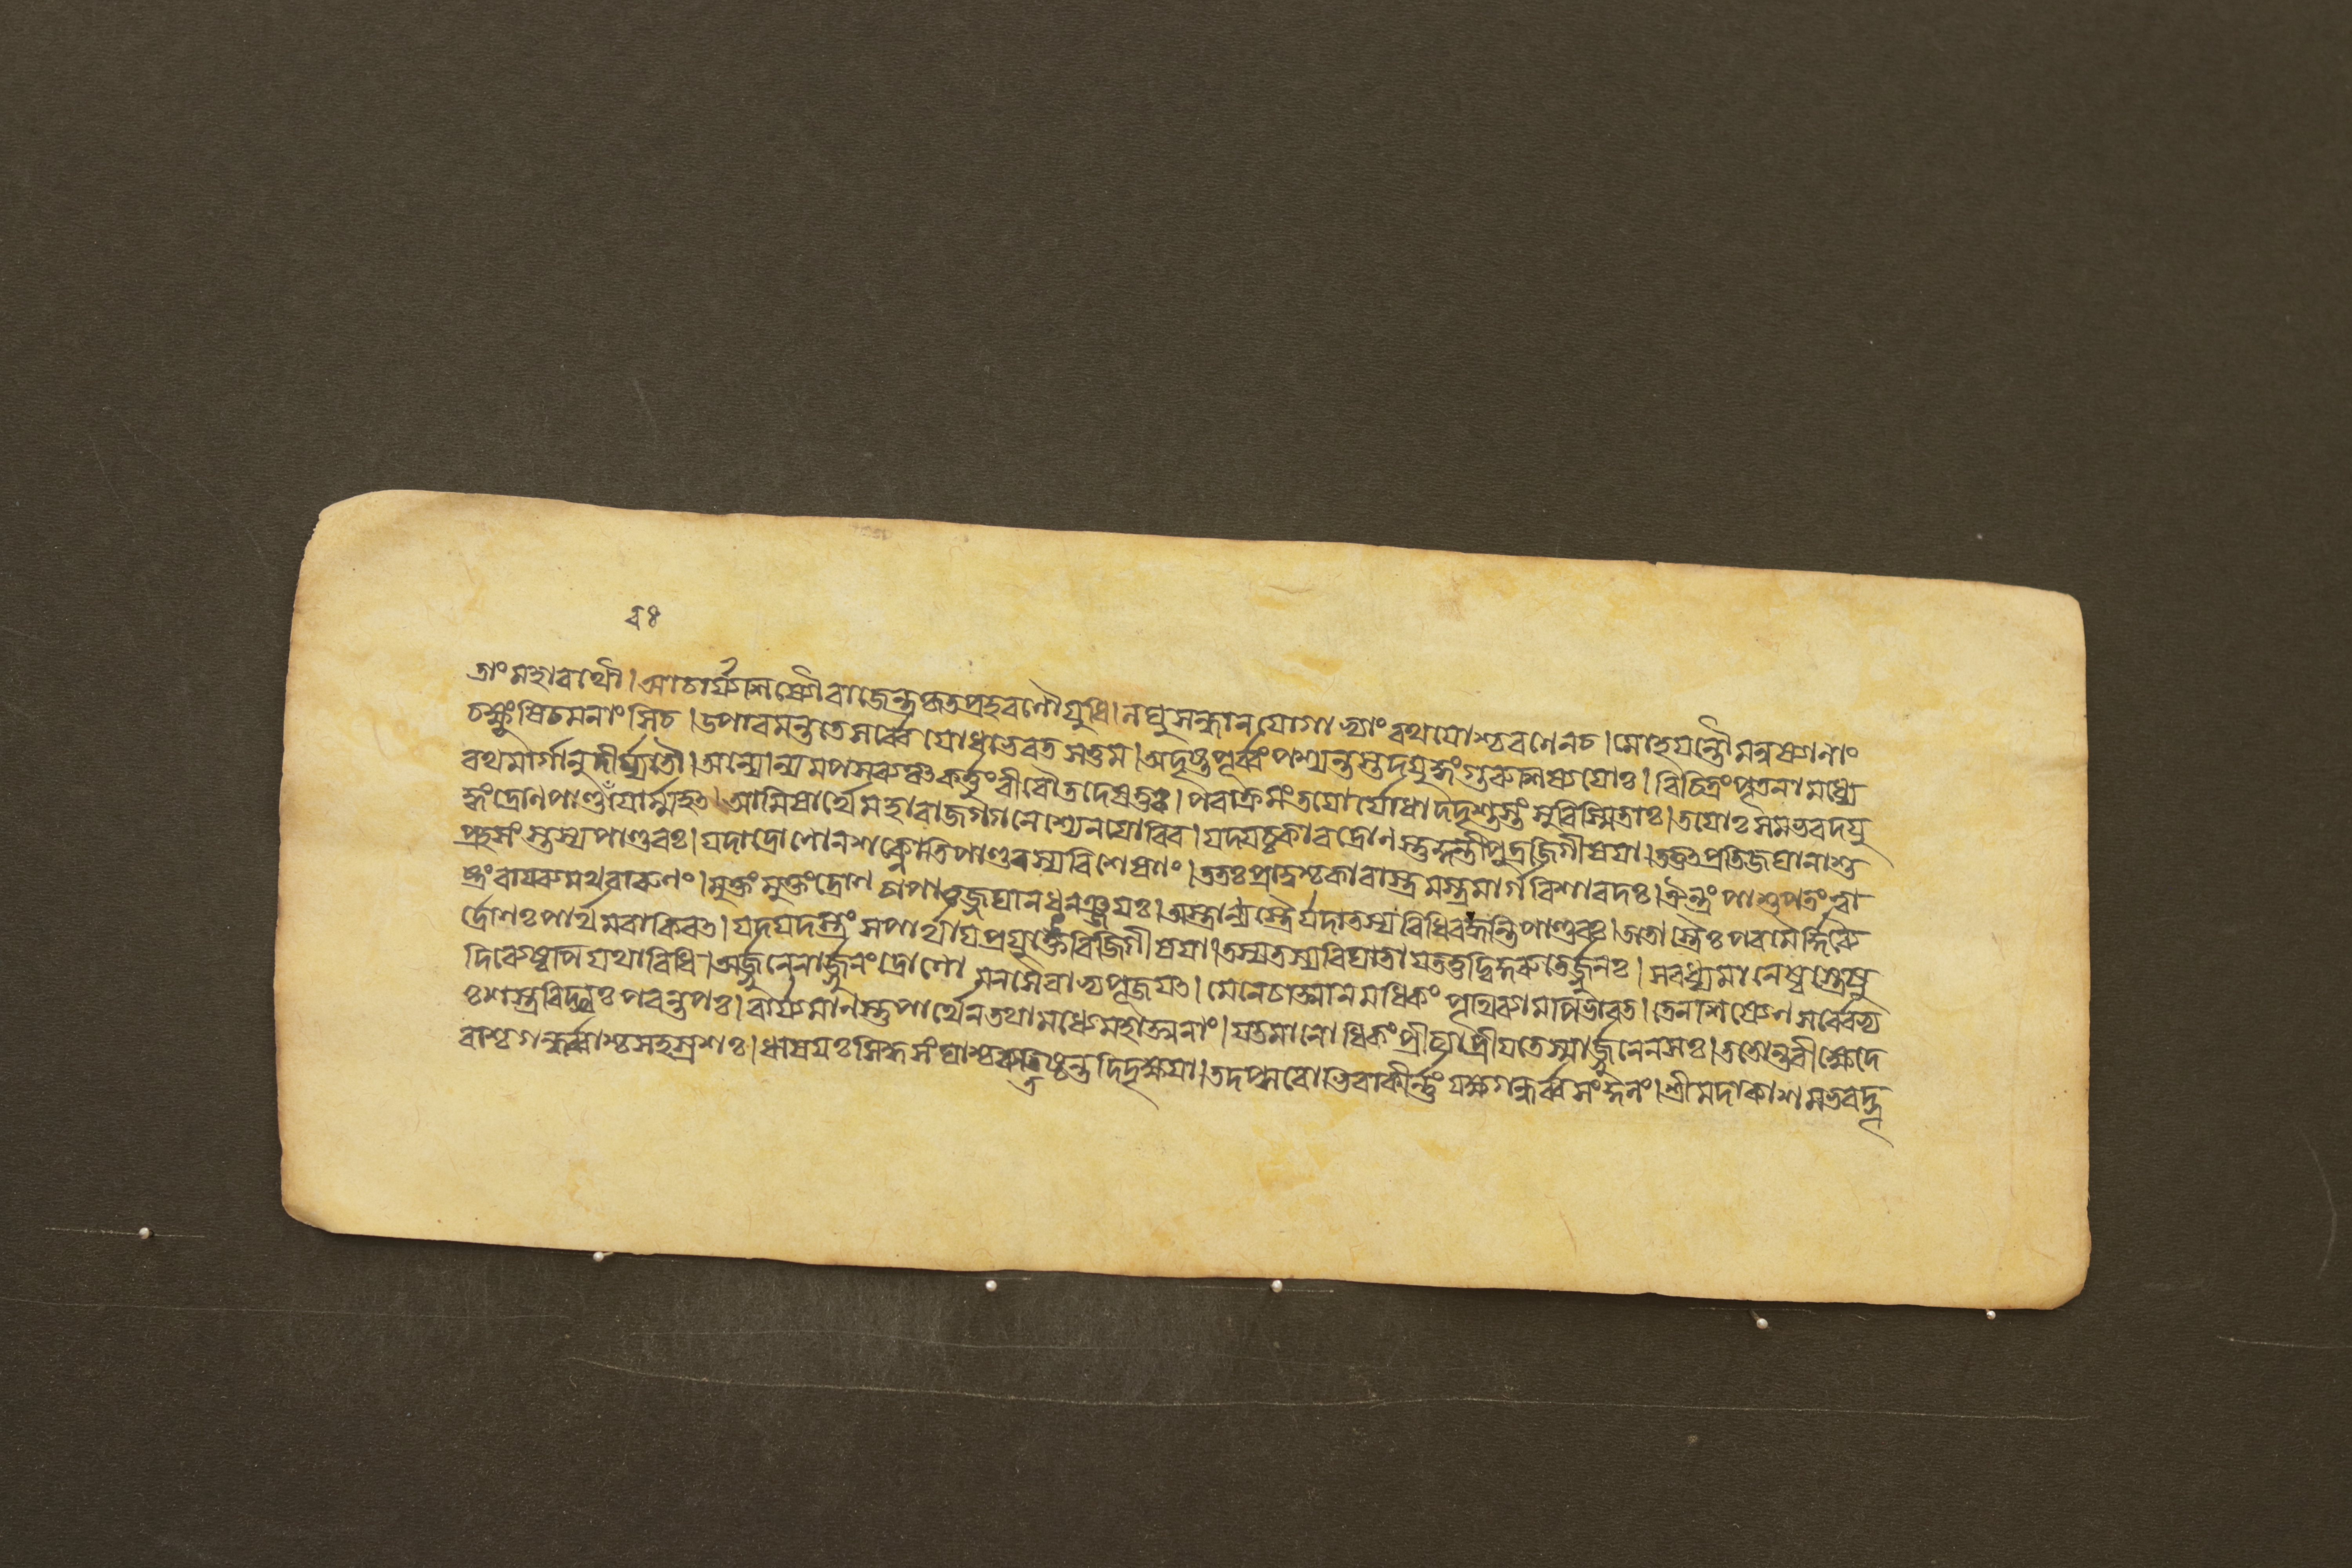 ত্রাং মহাৰথৌ। আচার্য্যশিষ্যৌ ৰাজেন্দ্র কৃতপ্রহৰণৌ যুধি। লঘুসন্ধানযোগাভ্যাং ৰথযোশ্চ ৰণেনচ। মোহযন্তৌ মনুষ্যাণাং
চক্ষুংষিচমনাংসিচ। উপাৰমন্তুতে সর্ব্বে যোধাভৰতসত্তম। অদৃষ্টপূর্ব্বং পশ্যন্তস্তদযুদ্ধং গুৰুশিষ্যযোঃ। বিচিত্রং পৃতনামধ্যে
ৰথমার্গানুদীর্য্যতৌ। অন্যোন্যমপসব্যঞ্চ কর্ত্তুংবীৰৌতদেষতুঃ। পৰাক্রমং তযোর্যোধা দদৃশুস্তং সুবিস্মিতাঃ। তযোঃ সমভবদযু
দ্ধং দ্রোণপাণ্ডবযোর্ম্মহৎ। আমিষার্থে মহাৰাজ গগনে শ্যেনযোৰিব। যদ্যচ্চকাৰ দ্রোণস্তু কুন্তীপুত্রজিগীষযা। তত্তৎপ্রতিজঘানাশু
প্রহসংস্তস্যপাণ্ডবঃ। যদাদ্রোণোনশক্নোতি পাণ্ডবস্যবিশেষণং। ততঃ প্রাদুশ্চকাৰাস্ত্রমস্ত্রমার্গবিশাৰদঃ। ঐন্দ্রং পাশুপতংত্বা
ষ্ট্রং বাযব্যমথবাৰুণং। মুক্তং মুক্তং দ্রোণচাপাজ্জঘান ধনঞ্জযঃ। অস্ত্রাণ্যস্ত্রৈর্যদাতস্য বিধিবদ্ধন্তিপাণ্ডবঃ। ততোস্ত্রৈঃ পৰমৈর্দ্দিব্যৈ
র্দ্রোণঃ পার্থমবাকিৰৎ। যদ্যদস্ত্রং সপার্থায প্রযুঙ্ক্তে বিজিগীষযা। তস্যতস্যবিঘাতায তত্তদ্ধিকুৰুতের্জ্জুনঃ। সবধ্যমানেষ্বস্ত্রেষু
দিব্যেষ্বপি যথাবিধি। অর্জ্জুনেনার্জ্জুনং দ্রোণো মনসৈবাভ্যপূজযৎ। মেনেচাত্মানমধিকং পৃথিব্যামপিভাৰত। তেনশিষ্যেণ সর্ব্বেভ্য
ঃ শস্ত্রবিদ্ভ্যঃ পৰন্তপঃ। বার্য্যমাণস্তুপার্থেন তথামধ্যেমহাত্মনাং। যতমানোধিকং প্রীত্যা প্রীযতেস্মার্জ্জুনেনসঃ। ততোন্তৰীক্ষেদে
বাশ্চগন্ধর্ব্বাশ্চসহস্রশঃ। ঋষযঃ সিদ্ধসংঘাশ্চ ব্যতিষ্ঠন্ত দিদৃক্ষযা। তদপ্সৰোভিৰাকীর্ণং যক্ষগন্ধর্ব্বসংকুলং। শ্রীমদাকাশমভবদ্ভূ